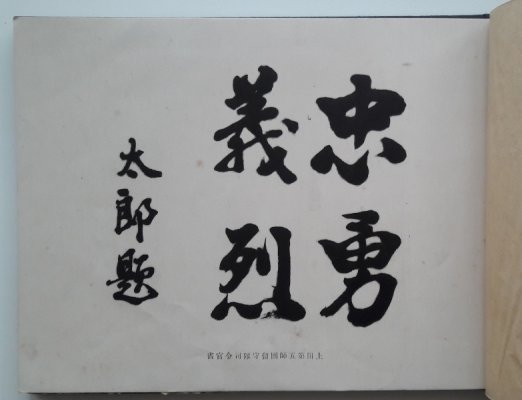 忠勇
義烈
太郎題
第五師團留守隊司令官